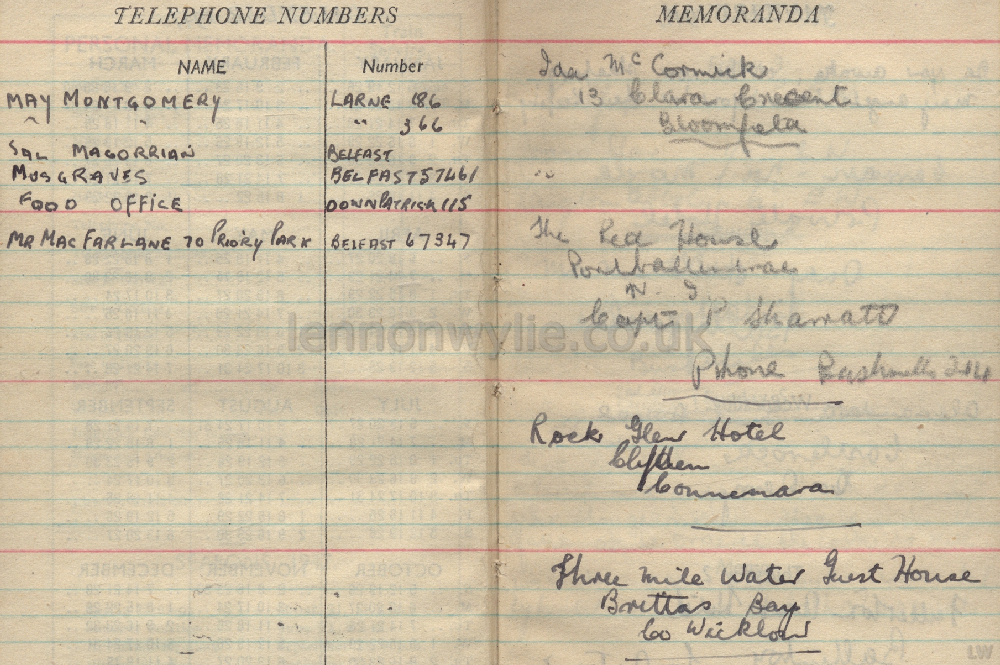 TELEPHONE NUMBERS
NAME Number
MAY MONTGOMERY LARNE 186
" " " 366
SAL MAGORRIAN BELFAST
MUSGRAVES BELFAST 57461
FOOD OFFICE DOWNPATRICK 115
MR MACFARLANE TO PRIORY PARK BELFAST 67347
MEMORANDA
Ida Mc Cormick
13 Clara Crecent
Bloomfield
"
The Red House
Portballintrae
N. I
Capt P
Phone Bushmills
Rock Glen Hotel
Clifden
Connemara
Three mile Water Guest House
Brittas Bay
Co Wicklow
lennonwylie.co.uk
LW